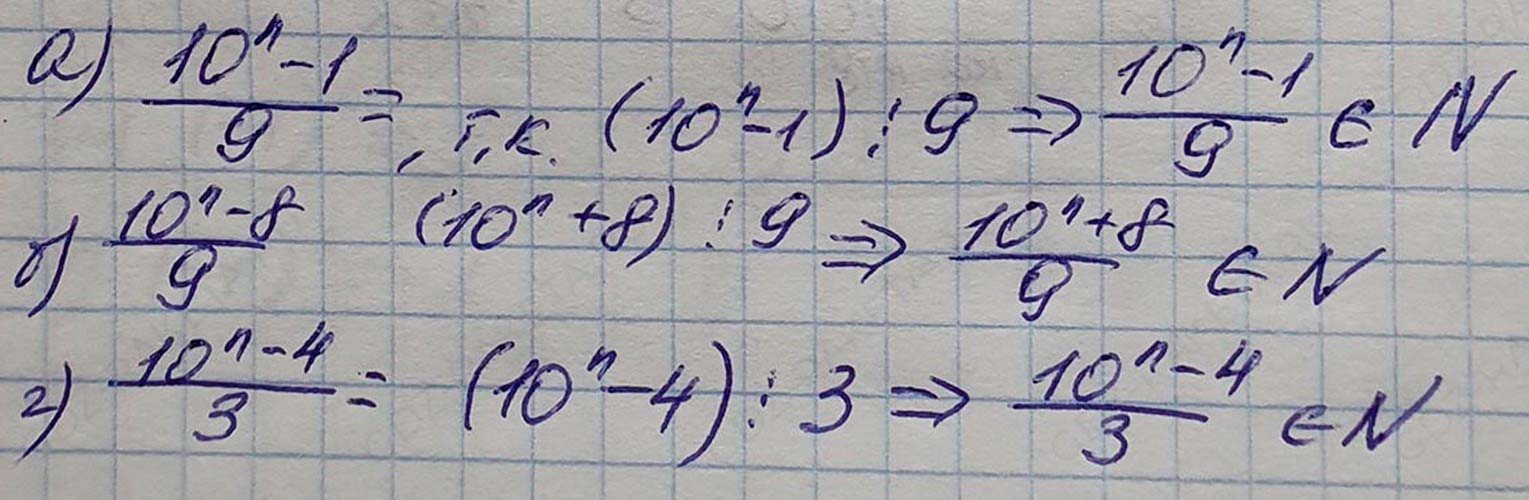 а) (10ⁿ-1)/9 =, т.к. (10ⁿ-1) ⋮ 9 ⇒ (10ⁿ-1)/9 ∈ N
б) (10ⁿ-8)/9 (10ⁿ+8) ⋮ 9 ⇒ (10ⁿ+8)/9 ∈ N
г) (10ⁿ-4)/3 = (10ⁿ-4) ⋮ 3 ⇒ (10ⁿ-4)/3 ∈ N